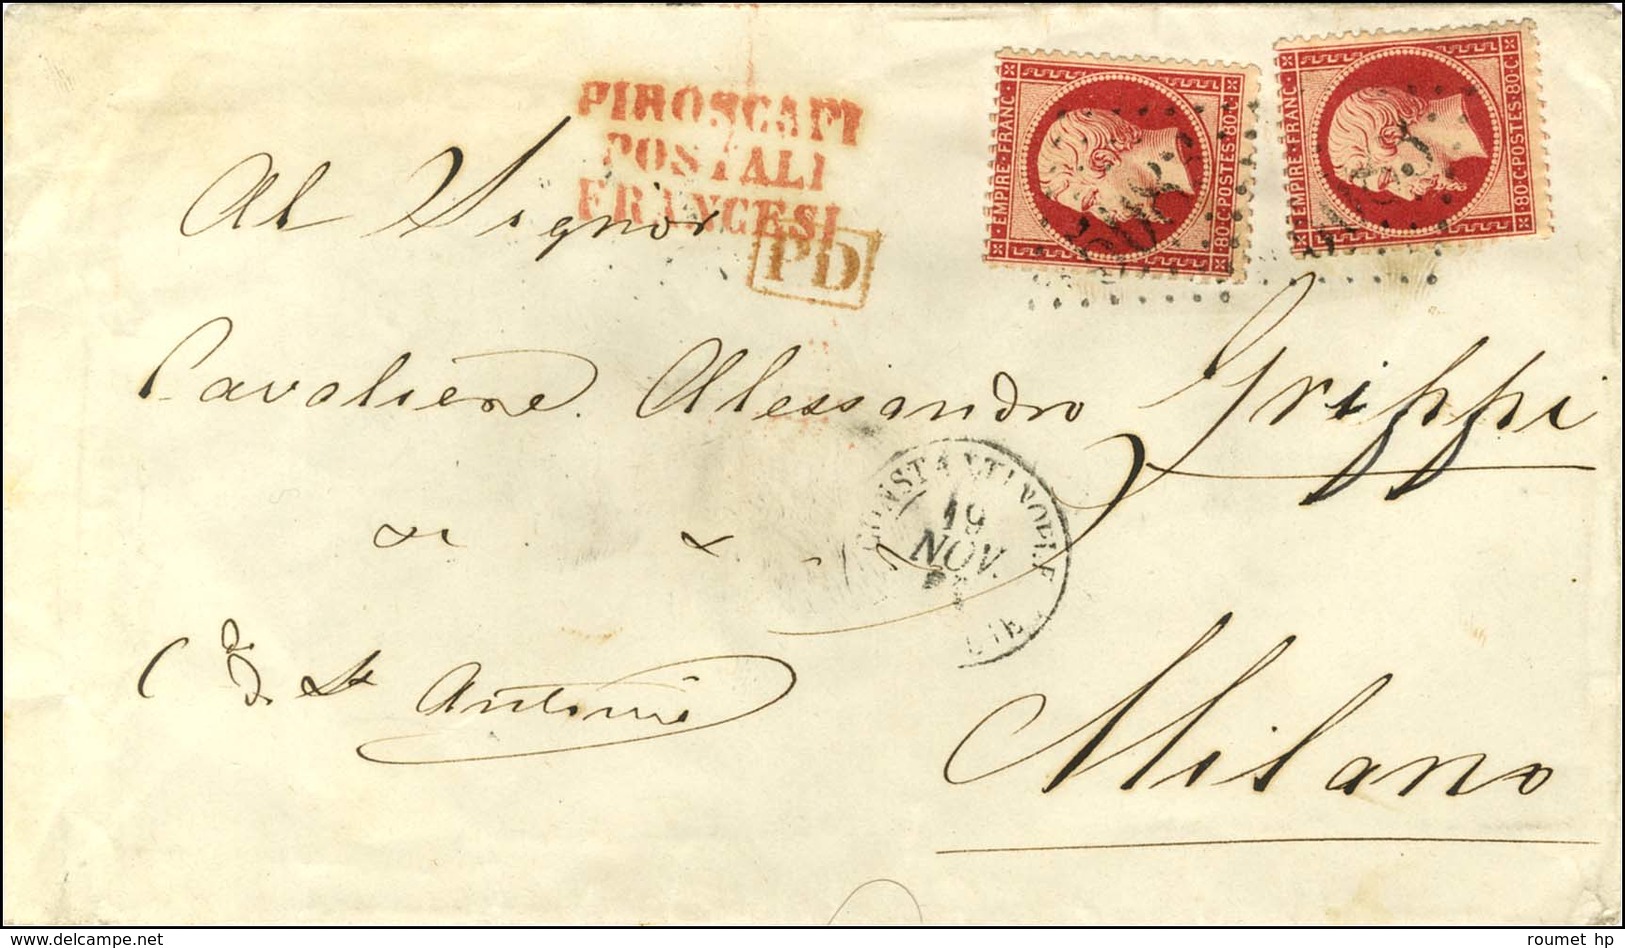 PIROSCAFI
POSTALI
FRANCESI
PD
EMPIRE·FRANC·
80·C·POSTES·80·C·
EMPIRE·FRANC·
80·C·POSTES·80·C·
Al Signor
Cavaliere Alessandro Grippi
CONSTANTINOPLE
19
NOV.
St Antonio
Milano
www.delcampe.net
roumet hp